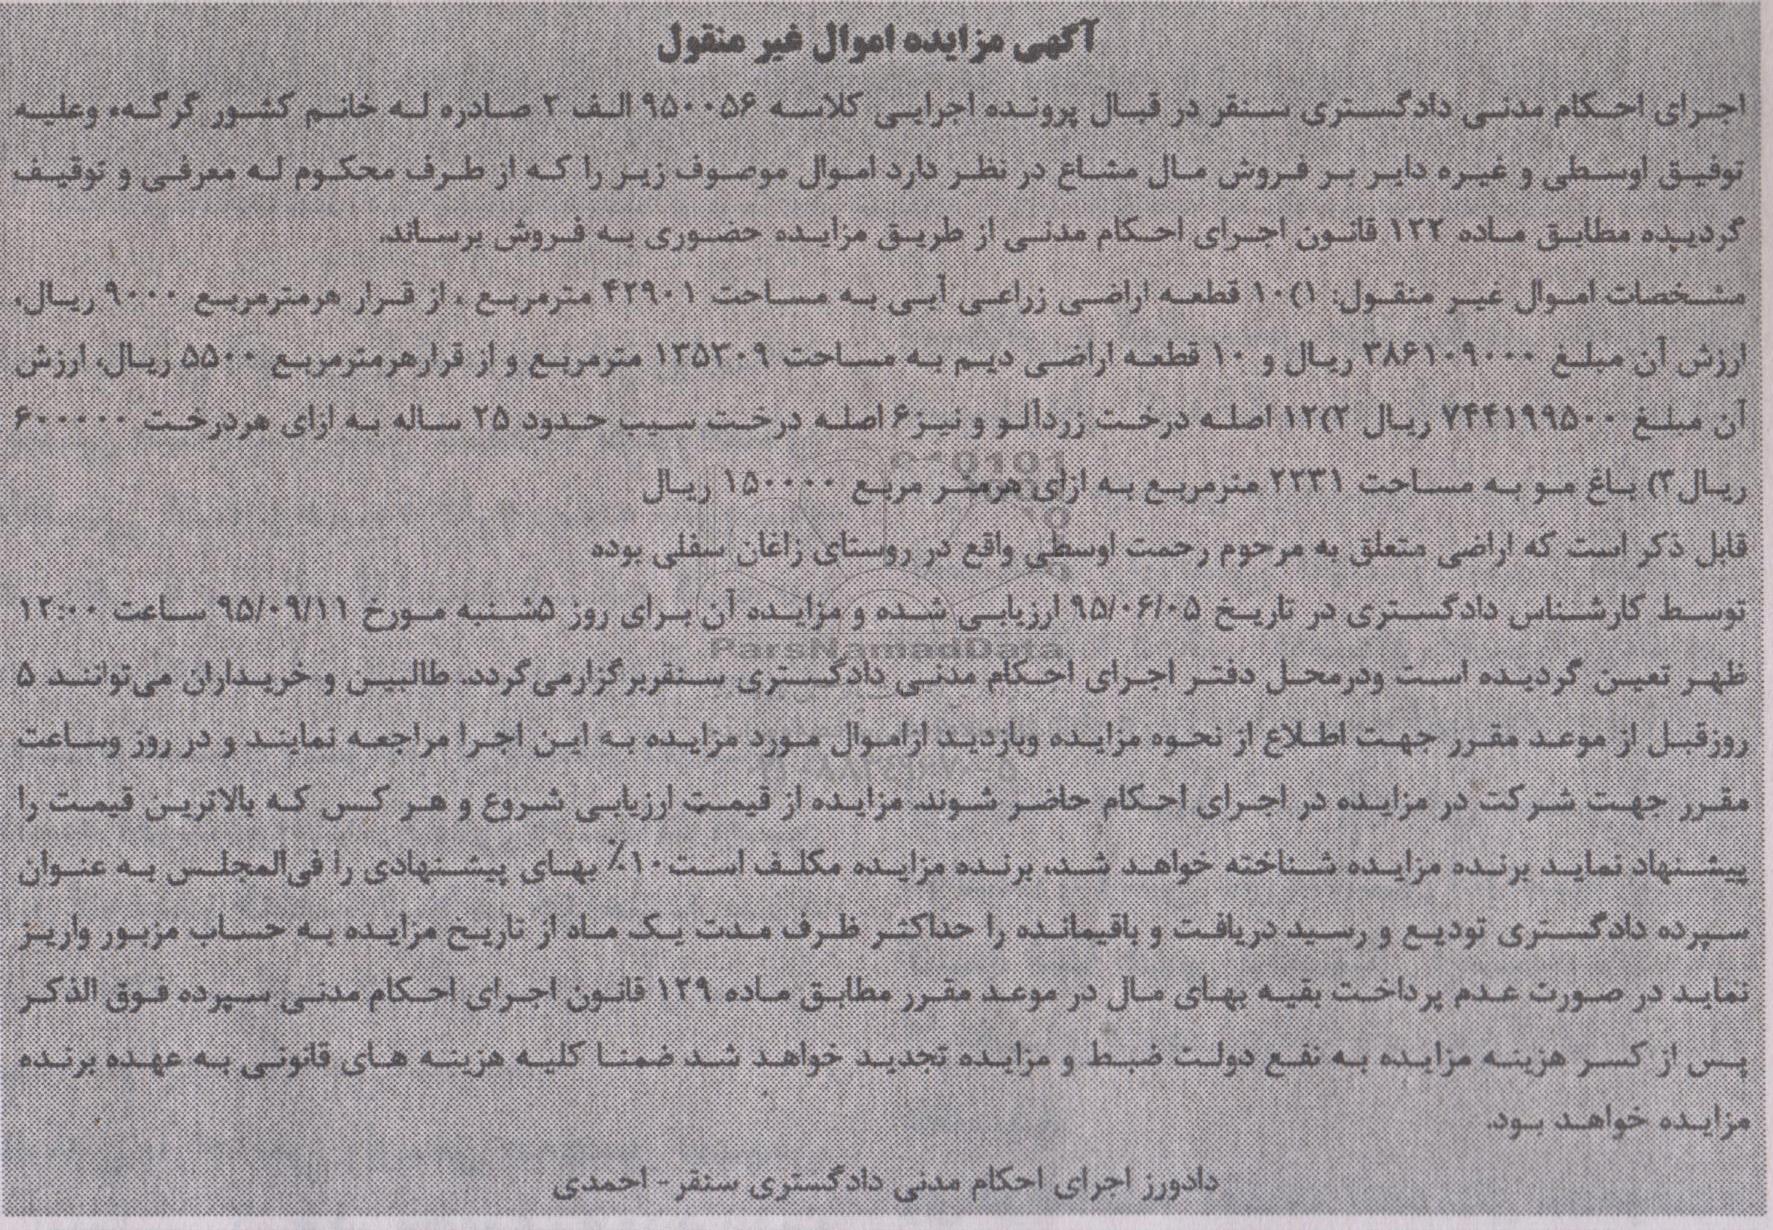 آگهی مزایده اموال غیر منقول
اجرای احکام مدنی دادگستری سنقر در قبال پرونده اجرایی کلاسه ۹۵۰۰۵۶ الف ۲ صادره له خانم کشور گرگهء وعلیه
توفیق اوسطی و غیره دایر بر فروش مال مشاع در نظر دارد اموال موصوف زیر را که از طرف محکوم له معرفی و توقیف
گردیده مطابق ماده ۱۲۲ قانون اجرای احکام مدنی از طریق مزایده حضوری به فروش برساند.
مشخصات اموال غیر منقول: ۱)۱۰ قطعه اراضی زراعی آبی به مساحت ۴۲۹۰۱ مترمربع ، از قرار هرمترمربع ۹۰۰۰ ریال،
ارزش آن مبلغ ۳۸۶۱۰۹۰۰۰ ریال و ۱۰ قطعه اراضی دیم به مساحت ۱۳۵۳۰۹ مترمربع و از قرارهرمترمربع ۵۵۰۰ ریال، ارزش
آن مبلغ ۷۴۴۱۹۹۵۰۰ ریال ۲)۱۲ اصله درخت زردآلو و نیز۶ اصله درخت سیب حدود ۲۵ ساله به ازای هردرخت ۶۰۰۰۰۰
ریال۳) باغ مو به مساحت ۲۳۳۱ مترمربع به ازای هرمتر مربع ۱۵۰۰۰۰ ریال
قابل ذکر است که اراضی متعلق به مرحوم رحمت اوسطی واقع در روستای زاغان سفلی بوده
توسط کارشناس دادگستری در تاریخ ۹۵/۰۶/۰۵ ارزیابی شده و مزایده آن برای روز ۵شنبه مورخ ۹۵/۰۹/۱۱ ساعت ۱۲:۰۰
ظهر تعین گردیده است ودرمحل دفتر اجرای احکام مدنی دادگستری سنقربرگزارمی‌گردد. طالبین و خریداران می‌توانند ۵
روزقبل از موعد مقرر جهت اطلاع از نحوه مزایده وبازدید ازاموال مورد مزایده به این اجرا مراجعه نمایند و در روز وساعت
مقرر جهت شرکت در مزایده در اجرای احکام حاضر شوند. مزایده از قیمت ارزیابی شروع و هر کس که بالاترین قیمت را
پیشنهاد نماید برنده مزایده شناخته خواهد شد، برنده مزایده مکلف است۱۰٪ بهای پیشنهادی را فی‌المجلس به عنوان
سپرده دادگستری تودیع و رسید دریافت و باقیمانده را حداکثر ظرف مدت یک ماه از تاریخ مزایده به حساب مزبور واریز
نماید در صورت عدم پرداخت بقیه بهای مال در موعد مقرر مطابق ماده ۱۲۹ قانون اجرای احکام مدنی سپرده فوق الذکر
پس از کسر هزینه مزایده به نفع دولت ضبط و مزایده تجدید خواهد شد ضمنا کلیه هزینه های قانونی به عهده برنده
مزایده خواهد بود.
دادورز اجرای احکام مدنی دادگستری سنقر - احمدی
ParsNamadData